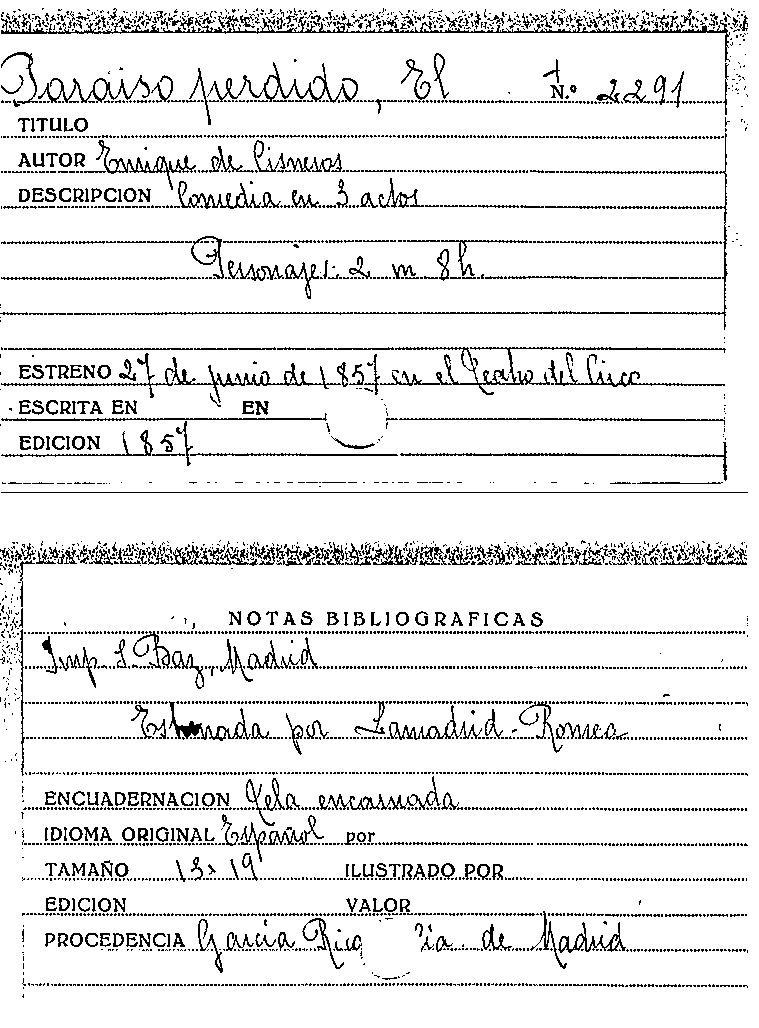 Paraiso perdido, El N.º 2291
TITULO
AUTOR Enrique de Cisneros
DESCRIPCION Comedia en 3 actos
Personajes: 2 m 8h.
ESTRENO 27 de junio de 1857 en el Teatro del Circo
ESCRITA EN EN
EDICION 1857
NOTAS BIBLIOGRAFICAS
Imp. S. Baz, Madrid
Estrenada por Lamadrid-Romea
ENCUADERNACION Tela encarnada
IDIOMA ORIGINAL Español por
TAMAÑO 13x19 ILUSTRADO POR
EDICION VALOR
PROCEDENCIA García Rico ía. de Madrid